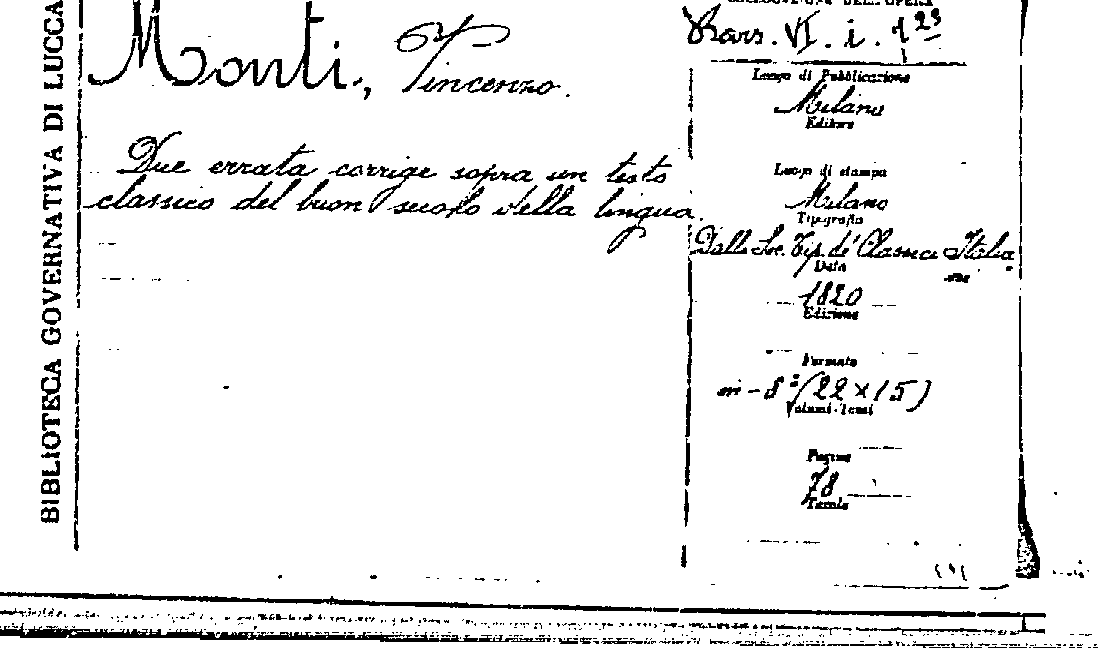 BIBLIOTECA GOVERNATIVA DI LUCCA
Monti, Vincenzo.
Due errata corrige sopra un testo
classico del buon secolo della lingua.
VI. i. 123
Luogo di Pubblicazione
Milano
Editore
Luogo di stampa
Milano
Tipografia
Dalla Soc. Tip. de' Classici Italia
ni
Data
1820
Edizione
Formato
in-8° (22 x 15)
Volumi-Tomi
Pagine
78
Tavole